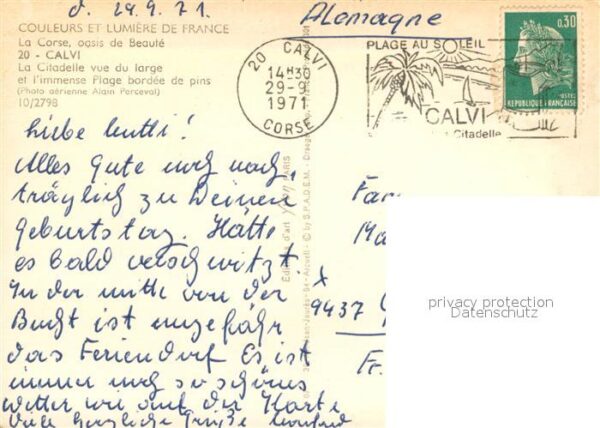 d. 29.9.71.
Alemagne
COULEURS ET LUMIÈRE DE FRANCE
La Corse, oasis de Beauté
20 - CALVI
La Citadelle vue du large
et l'immense Plage bordée de pins
(Photo aérienne Alain Perceval)
10/2798
20 CALVI
14H30
29-9
1971
CORSE
PLAGE AU SOLEIL
CALVI
Citadelle
0,30
POSTES
REPUBLIQUE FRANÇAISE
Liebe Mutti!
Alles Gute noch nach-
träglich zu Deinem
Geburtstag. Hätte
es bald verschwitzt.
In der mitte von der
Bucht ist ungefähr
das Feriendorf Es ist
immer noch so schönes
Wetter wie auf der Karte
Viele herzliche Grüße
Editions d'art YVON PARIS
© by S.P.A.D.E.M.
9437
Fr.
privacy protection
Datenschutz